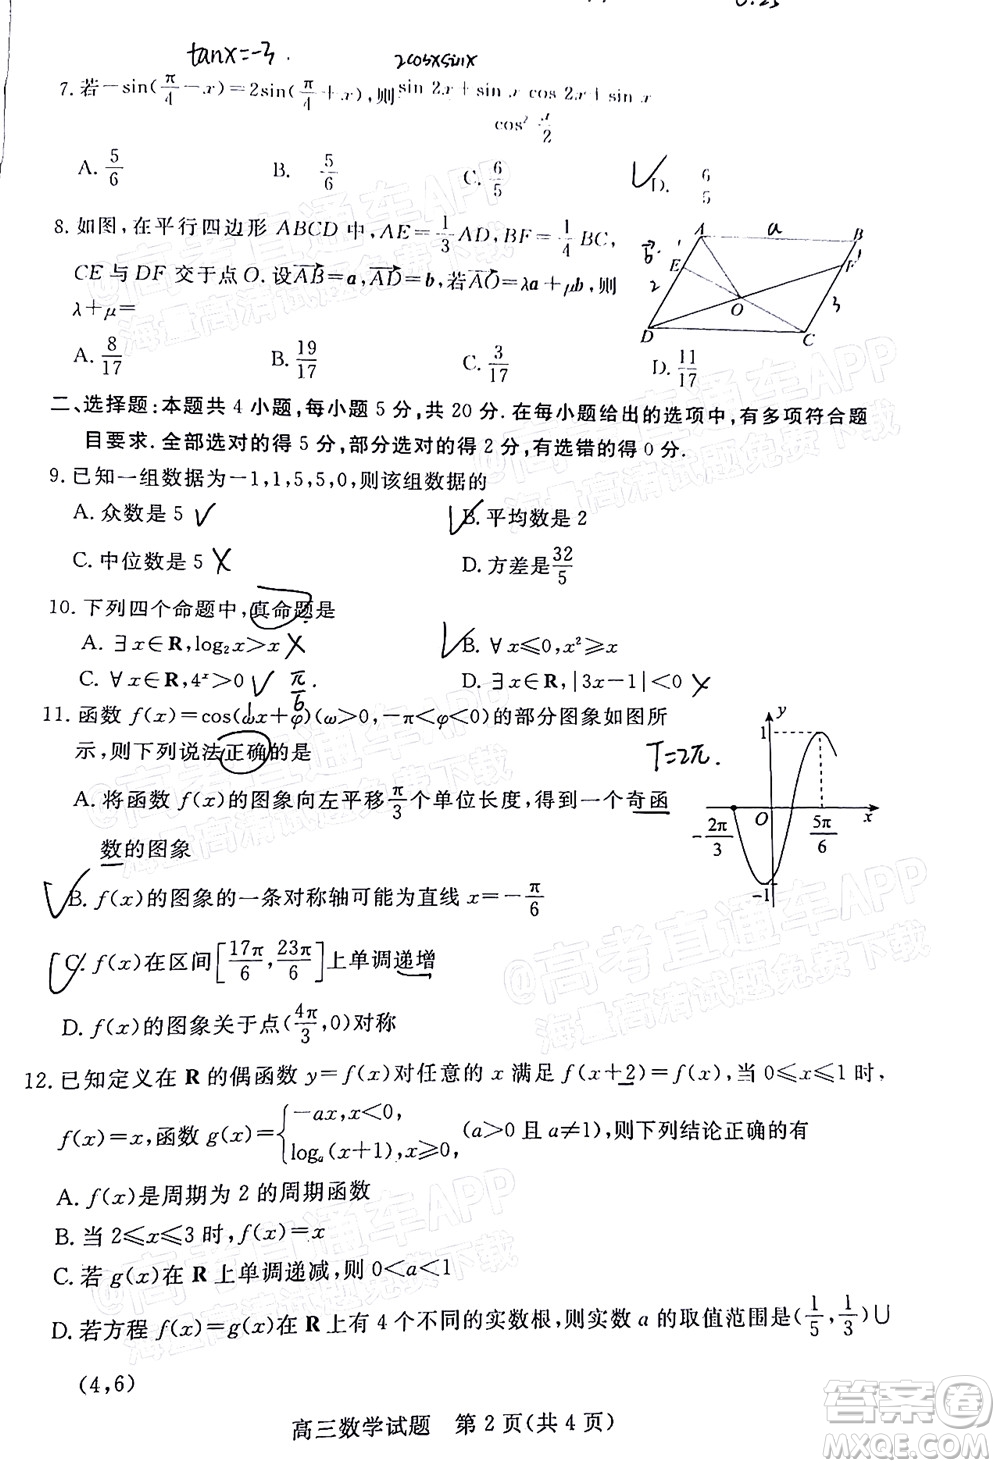 0.25
tanx=-3
2cosxsinx
7. 若-sin(π/4-x)=2sin(π/4+x),则 (sin 2x+sin x cos 2x+sin x)/(cos² x/2)
A. 5/6 B. -5/6 C. 6/5 D. -6/5
8. 如图,在平行四边形 ABCD 中,AE=1/3 AD,BF=1/4 BC,
CE 与 DF 交于点 O. 设AB=a,AD=b,若AO=λa+μb,则
λ+μ=
A. 8/17 B. 19/17 C. 3/17 D. 11/17
A a B
b 1
E F 1
2 O 3
D C
二、选择题:本题共 4 小题,每小题 5 分,共 20 分. 在每小题给出的选项中,有多项符合题
目要求. 全部选对的得 5 分,部分选对的得 2 分,有选错的得 0 分.
9. 已知一组数据为-1,1,5,5,0,则该组数据的
A. 众数是 5 √ B. 平均数是 2
C. 中位数是 5 × D. 方差是32/5
10. 下列四个命题中,真命题是
A. ∃x∈R,log₂x>x × B. ∀x≤0,x²≥x
C. ∀x∈R,4ˣ>0 √ π/6 D. ∃x∈R,|3x-1|<0 ×
11. 函数 f(x)=cos(ωx+φ)(ω>0,-π<φ<0)的部分图象如图所
示,则下列说法正确的是 T=2π.
A. 将函数 f(x)的图象向左平移π/3个单位长度,得到一个奇函
数的图象
B. f(x)的图象的一条对称轴可能为直线 x=-π/6
C. f(x)在区间[17π/6,23π/6]上单调递增
D. f(x)的图象关于点(4π/3,0)对称
y
1
-2π/3 O 5π/6 x
-1
12. 已知定义在 R 的偶函数 y=f(x)对任意的 x 满足 f(x+2)=f(x),当 0≤x≤1 时,
f(x)=x,函数 g(x)={-ax,x<0, logₐ(x+1),x≥0, (a>0 且 a≠1),则下列结论正确的有
A. f(x)是周期为 2 的周期函数
B. 当 2≤x≤3 时,f(x)=x
C. 若 g(x)在 R 上单调递减,则 0<a<1
D. 若方程 f(x)=g(x)在 R 上有 4 个不同的实数根,则实数 a 的取值范围是(1/5,1/3)∪
(4,6)
高三数学试题 第 2 页(共 4 页)
@高考直通车APP
海量高清试题免费下载
答案圈
MXQE.COM